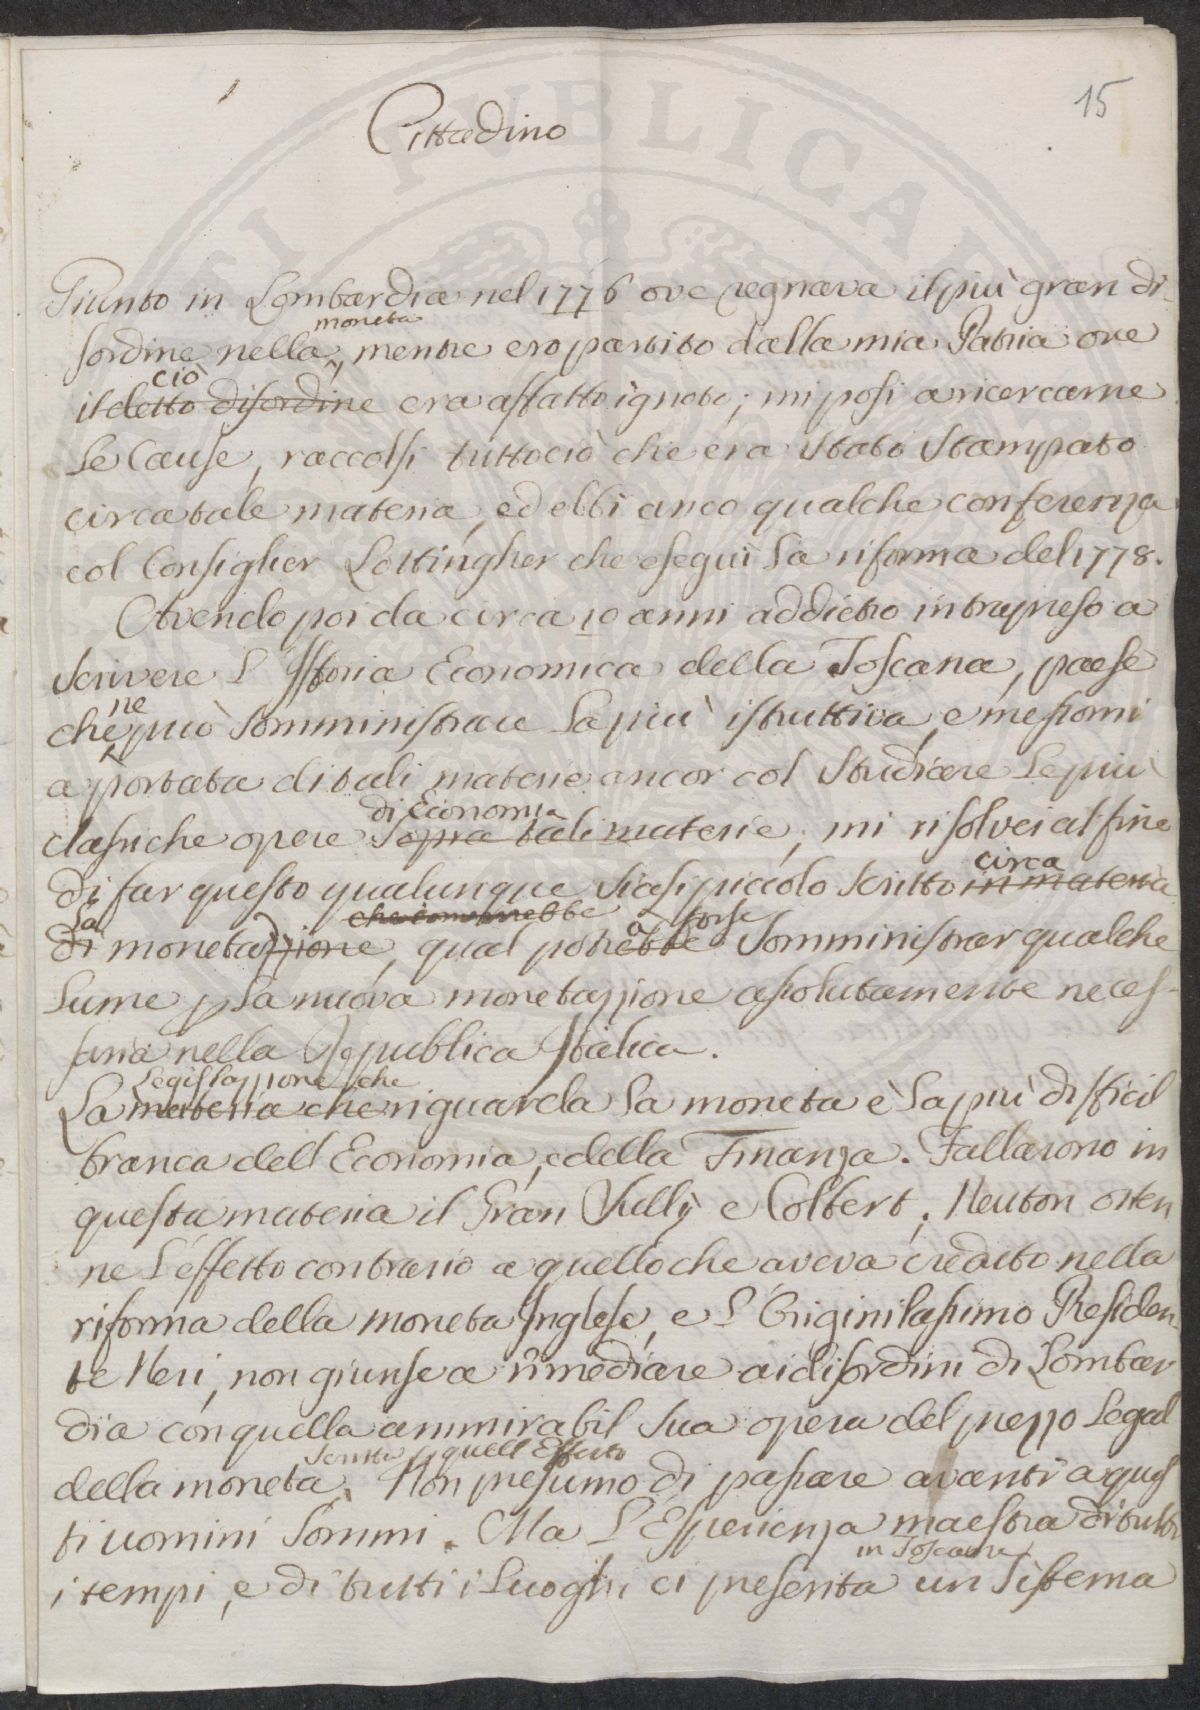 15
Cittadino
Giunto in Lombardia nel 1776 ove regnava il più gran di-
moneta
sordine nella, mentre ero partito dalla mia Patria ove
ciò
il detto disordine era affatto ignoto; mi posi a ricercarne
le Cause, raccolsi tuttociò che era stato stampato
circa tale materia, ed ebbi anco qualche conferenza
col Consiglier Lottingher che eseguì la riforma del 1778.
Avendo poi da circa 10 anni addietro intrapreso a
scrivere l'Istoria Economica della Toscana, paese
ne
che può somministrare la più istruttiva, e messomi
a portata di tali materie ancor col studiare le più
di Economia
classiche opere sopra tali materie, mi risolvei al fine
circa
di far questo qualunque siasi piccolo scritto in materia
la che converrebbe a forse
di monetazzione, qual potrebbe somministrar qualche
lume p la nuova monetazzione assolutamente neces-
saria nella Republica Italica.
Legislazzione che
La materia che riguarda la moneta è la più difficil
branca dell Economia, e della Finanza. Fallarono in
questa materia il Gran Sully e Colbert; Neuton otten
ne l'effetto contrario a quello che aveva creduto nella
riforma della moneta Inglese, e l'Originilassimo Presiden-
te Neri, non giunse a rimediare ai disordini di Lombar
dia con quella ammirabil sua opera del prezzo legal
scritta p quell Effetto
della moneta. Non presumo di passare avanti a ques
ti uomini sommi. Ma l'Esperienza maestra di tutti
in Toscana
i tempi, e di tutti i Luoghi ci presenta un sistema